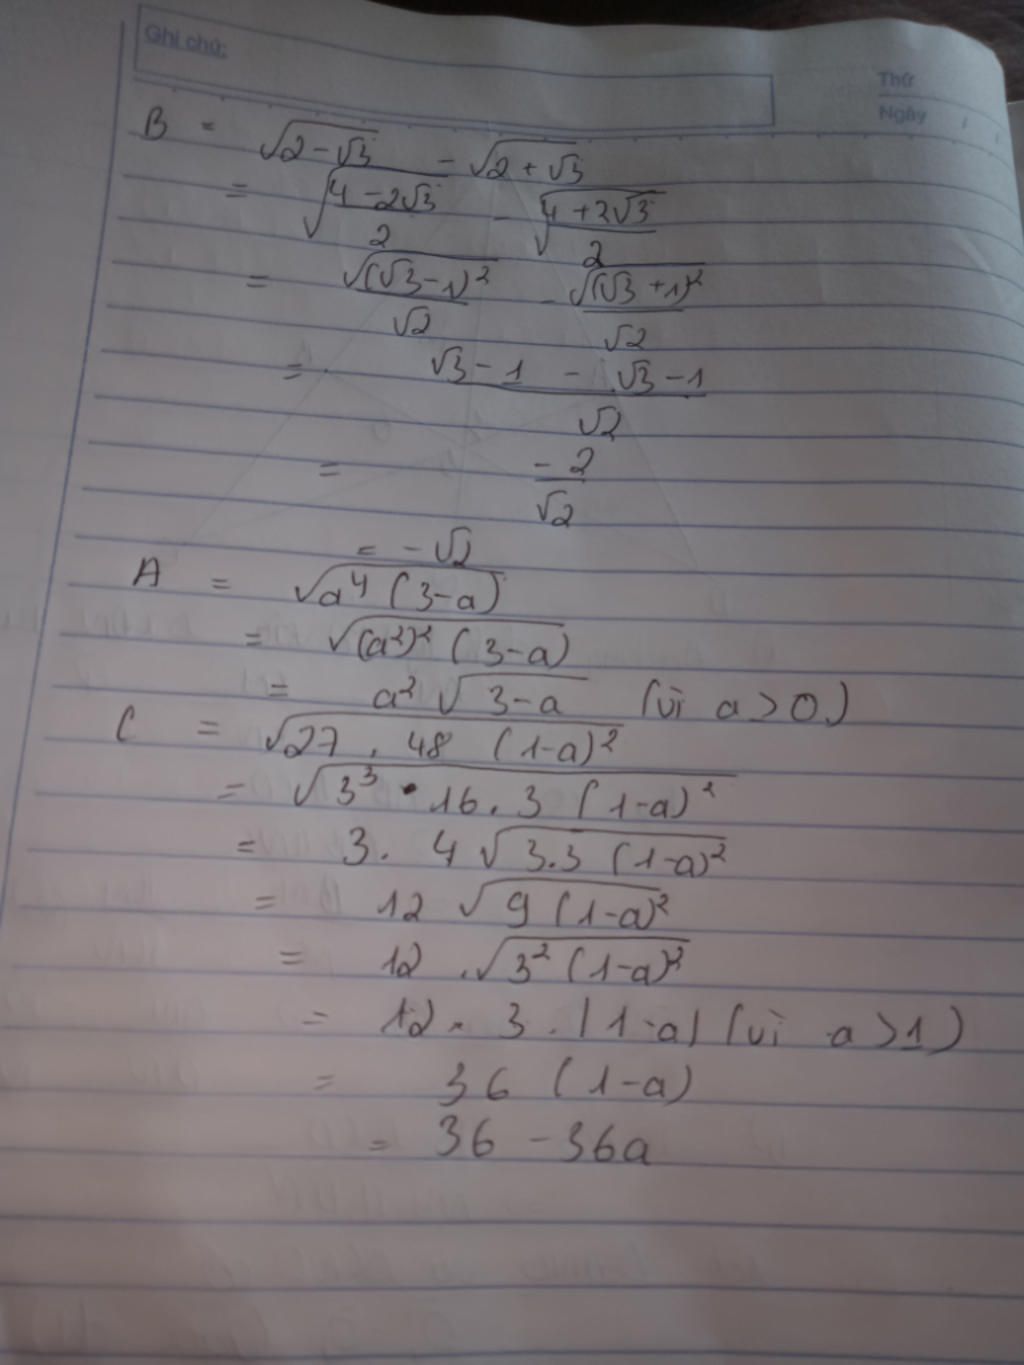 Ghi chú:
Thứ
Ngày / /
B = √2-√3 - √2+√3
= √(4-2√3)/2 - √(4+2√3)/2
= √(√3-1)² / √2 - √(√3+1)² / √2
= (√3-1 - √3-1) / √2
= -2/√2
= -√2
A = √a⁴(3-a)
= √(a²)²(3-a)
= a²√3-a (vì a>0)
C = √27.48(1-a)²
= √3³.16.3(1-a)²
= 3.4√3.3(1-a)²
= 12√9(1-a)²
= 12.√3²(1-a)²
= 12.3.|1-a| (vì a>1)
= 36(1-a)
= 36-36a